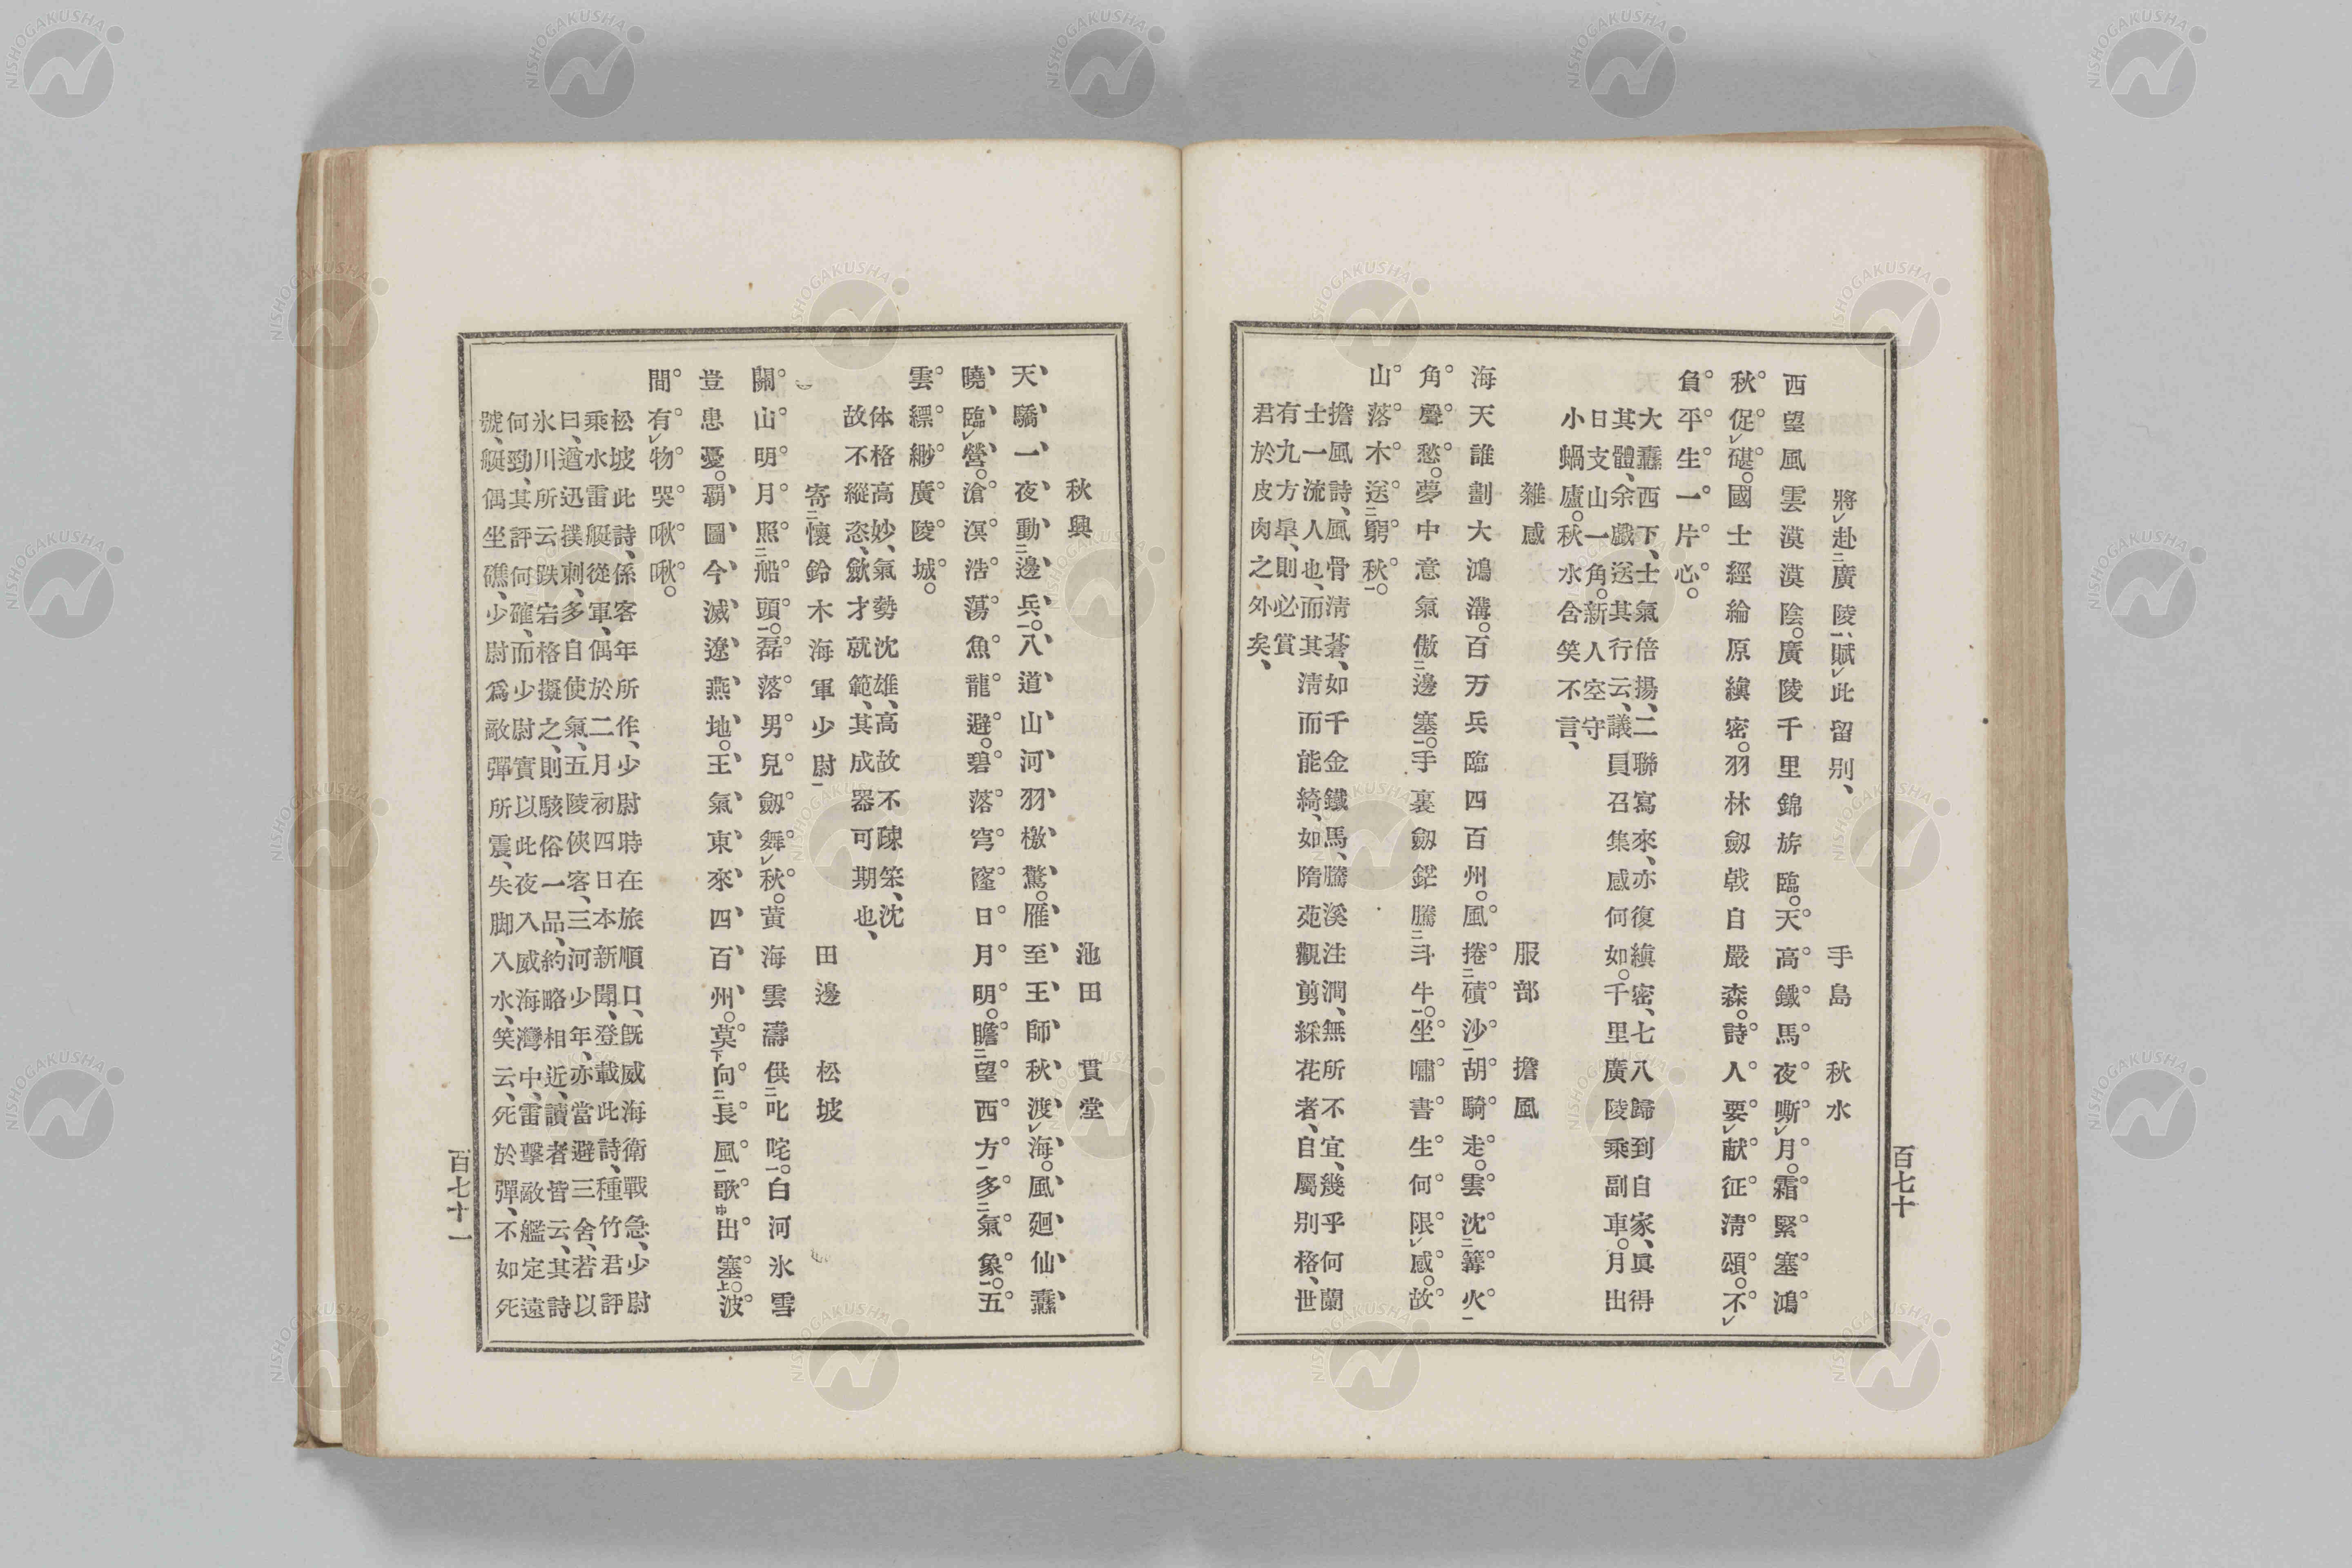 將赴廣陵、賦此留別、 手島 秋水
西望風雲漠漠陰。廣陵千里錦旂臨。天高鐵馬夜嘶月。霜緊塞鴻
秋促碪。國士經綸原縝密。羽林劔戟自嚴森。詩人要献征淸頌。不
負平生一片心。
大纛西下、士氣倍揚、二聯寫來、亦復縝密、七八歸到自家、眞得
其體、余戲送其行云、議員召集感何如。千里廣陵乘副車。月出
日支山一角。新人空守
小蝸廬。秋水含笑不言、
雜感 服部 擔風
海天誰劃大鴻溝。百万兵臨四百州。風捲磧沙胡騎走。雲沈篝火
角聲愁。夢中意氣傲邊塞。手裏劔鋩騰斗牛。坐嘯書生何限感。故
山落木送窮秋。
擔風風詩、風骨淸蒼、如千金鐵馬、騰溪注澗、無所不宜、幾乎何蘭
士一流人也、而其淸而能綺、如隋苑觀剪綵花者、自屬別格、世
有九方皐、則必賞
君於皮肉之外矣、
百七十
秋興 池田 貫堂
天驕一夜動邊兵。八道山河羽檄驚。雁至王師秋渡海。風廻仙纛
曉臨營。滄溟浩蕩魚龍避。碧落穹窿日月明。瞻望西方多氣象。五
雲縹緲廣陵城。
体格高妙、氣勢沈雄、高故不疎笨、沈
故不縱恣、歛才就範、其成器可期也、
寄懷鈴木海軍少尉 田邊 松坡
關山明月照船頭。磊落男兒劔舞秋。黃海雲濤供叱咤。白河氷雪
豈患憂。覇圖今滅遼燕地。王氣東來四百州。莫向長風歌出塞。波
間有物哭啾啾。
松坡此詩、係客年所作、少尉時在旅順口、旣威海衛戰急、少尉
乘水雷艇從軍、偶於二月初四日本新聞、登載此詩、種竹君評
曰、遒迅撲刺、多自使氣、五陵俠客、三河少年、亦當避三舍、若以
氷川所云跌宕格擬之、則駭俗一品、約略相近、讀者皆云、其詩
何勁、其評何確、而少尉實以此夜入威海灣中、雷擊敵艦定遠
號、艇偶坐礁、少尉爲敵彈所震、失脚入水、笑云、死於彈、不如死
百七十一